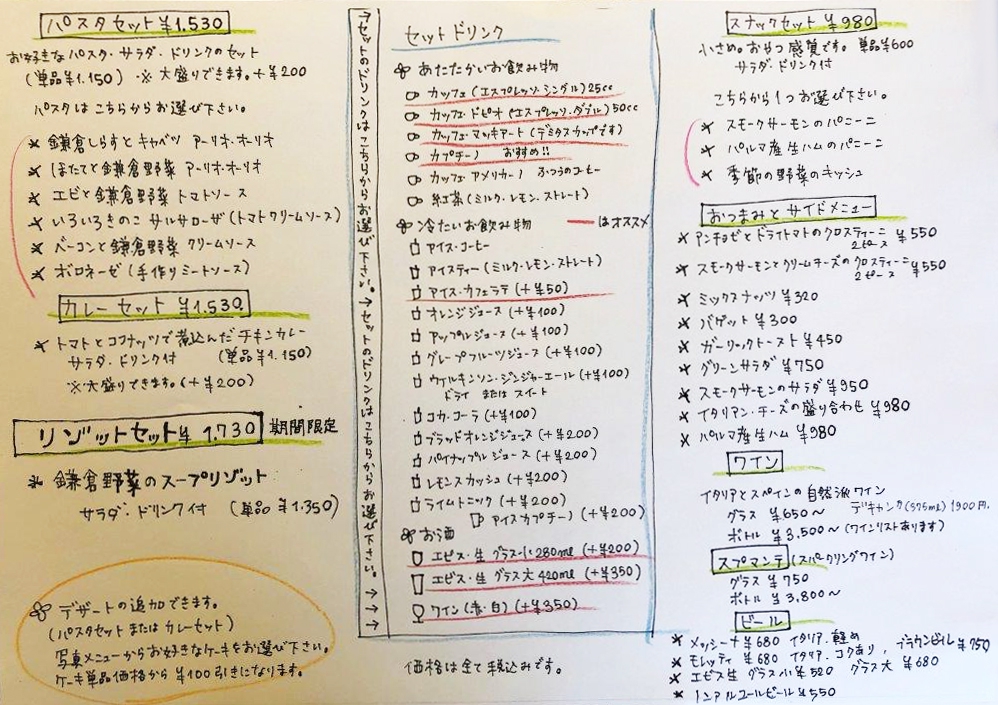 パスタセット ¥1.530
お好きなパスタ・サラダ・ドリンクのセット
(単品¥1.150) ・※ 大盛りできます。+¥200
パスタはこちらからお選び下さい。
* 鎌倉しらすとキャベツ アーリオ・オーリオ
* ほたてと鎌倉野菜 アーリオ・オーリオ
* エビと鎌倉野菜 トマトソース
* いろいろきのこ サルサローザ(トマトクリームソース)
* ベーコンと鎌倉野菜 クリームソース
* ボロネーゼ(手作りミートソース)
カレーセット ¥1.530.
* トマトとココナッツで煮込んだチキンカレー
サラダ・ドリンク付 (単品¥1.150)
※大盛りできます。(+¥200)
リゾットセット¥ 1.730 期間限定
* 鎌倉野菜のスープリゾット
サラダ・ドリンク付 (単品 ¥1.350)
デザートの追加できます。
(パスタセットまたはカレーセット)
写真メニューからお好きなケーキをお選び下さい。
ケーキ単品価格から ¥100引きになります。
→セットのドリンクはこちらからお選び下さい。→セットのドリンクはこちらからお選び下さい。→→→
セットドリンク
あたたかいお飲み物
カッフェ(エスプレッソ・シングル)25cc
カッフェ・ドピオ(エスプレッソ・ダブル)50cc
カッフェ・マッキアート(デミタスカップです)
カプチーノ おすすめ!!
カッフェ・アメリカーノ ふつうのコーヒー
紅茶(ミルク・レモン・ストレート)
冷たいお飲み物 ーはオススメ
アイス・コーヒー
アイスティー(ミルク・レモン・ストレート)
アイス・カフェラテ(+¥50)
オレンジジュース(+¥100)
アップルジュース(+¥100)
グレープフルーツジュース(+¥100)
ウィルキンソン・ジンジャーエール(+¥100)
ドライ または スイート
コカ・コーラ(+¥100)
ブラッドオレンジジュース(+¥200)
パイナップルジュース(+¥200)
レモンスカッシュ(+¥200)
ライムトニック(+¥200)
アイスカプチーノ(+¥200)
お酒
エビス・生 グラス小280ml(+¥200)
エビス・生 グラス大420ml(+¥350)
ワイン(赤・白)(+¥350)
価格は全て税込みです。
スナックセット ¥980
小さめ。おやつ感覚です。単品¥600
サラダ・ドリンク付
こちらから1つお選び下さい。
* スモークサーモンのパニーニ
* パルマ産生ハムのパニーニ
* 季節の野菜のキッシュ
おつまみとサイドメニュー
* アンチョビとドライトマトのクロスティーニ 2ピース ¥550
* スモークサーモンとクリームチーズのクロスティーニ 2ピース ¥550
* ミックスナッツ ¥320
* バゲット ¥300
* ガーリックトースト ¥450
* グリーンサラダ ¥750
* スモークサーモンのサラダ ¥950
* イタリアン・チーズの盛り合わせ ¥980
* パルマ産生ハム ¥980
ワイン
イタリアとスペインの自然派ワイン
グラス ¥650〜 デキャンタ(375ml) 1900円.
ボトル ¥3,500〜(ワインリストあります)
スプマンテ(スパークリングワイン)
グラス ¥750
ボトル ¥3.800〜
ビール
* メッシーナ ¥680 イタリア.軽め
* モレッティ ¥680 イタリア.コクあり, ブラウンビール ¥750
* エビス生 グラス小¥520 グラス大 ¥680
* ノンアルコールビール ¥550